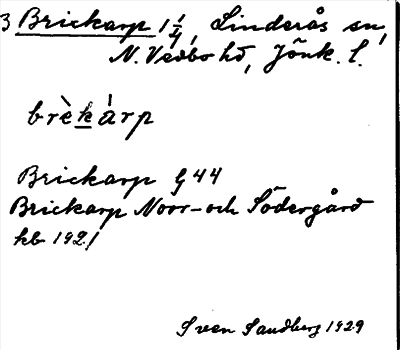 3 Brickarp 1 1/4, Linderås sn,
N. Vedbo hd, Jönk. l.
brèkárp
Brickarp G 44
Brickarp Norr- och Södergård
kb 1921
Sven Sandberg 1929